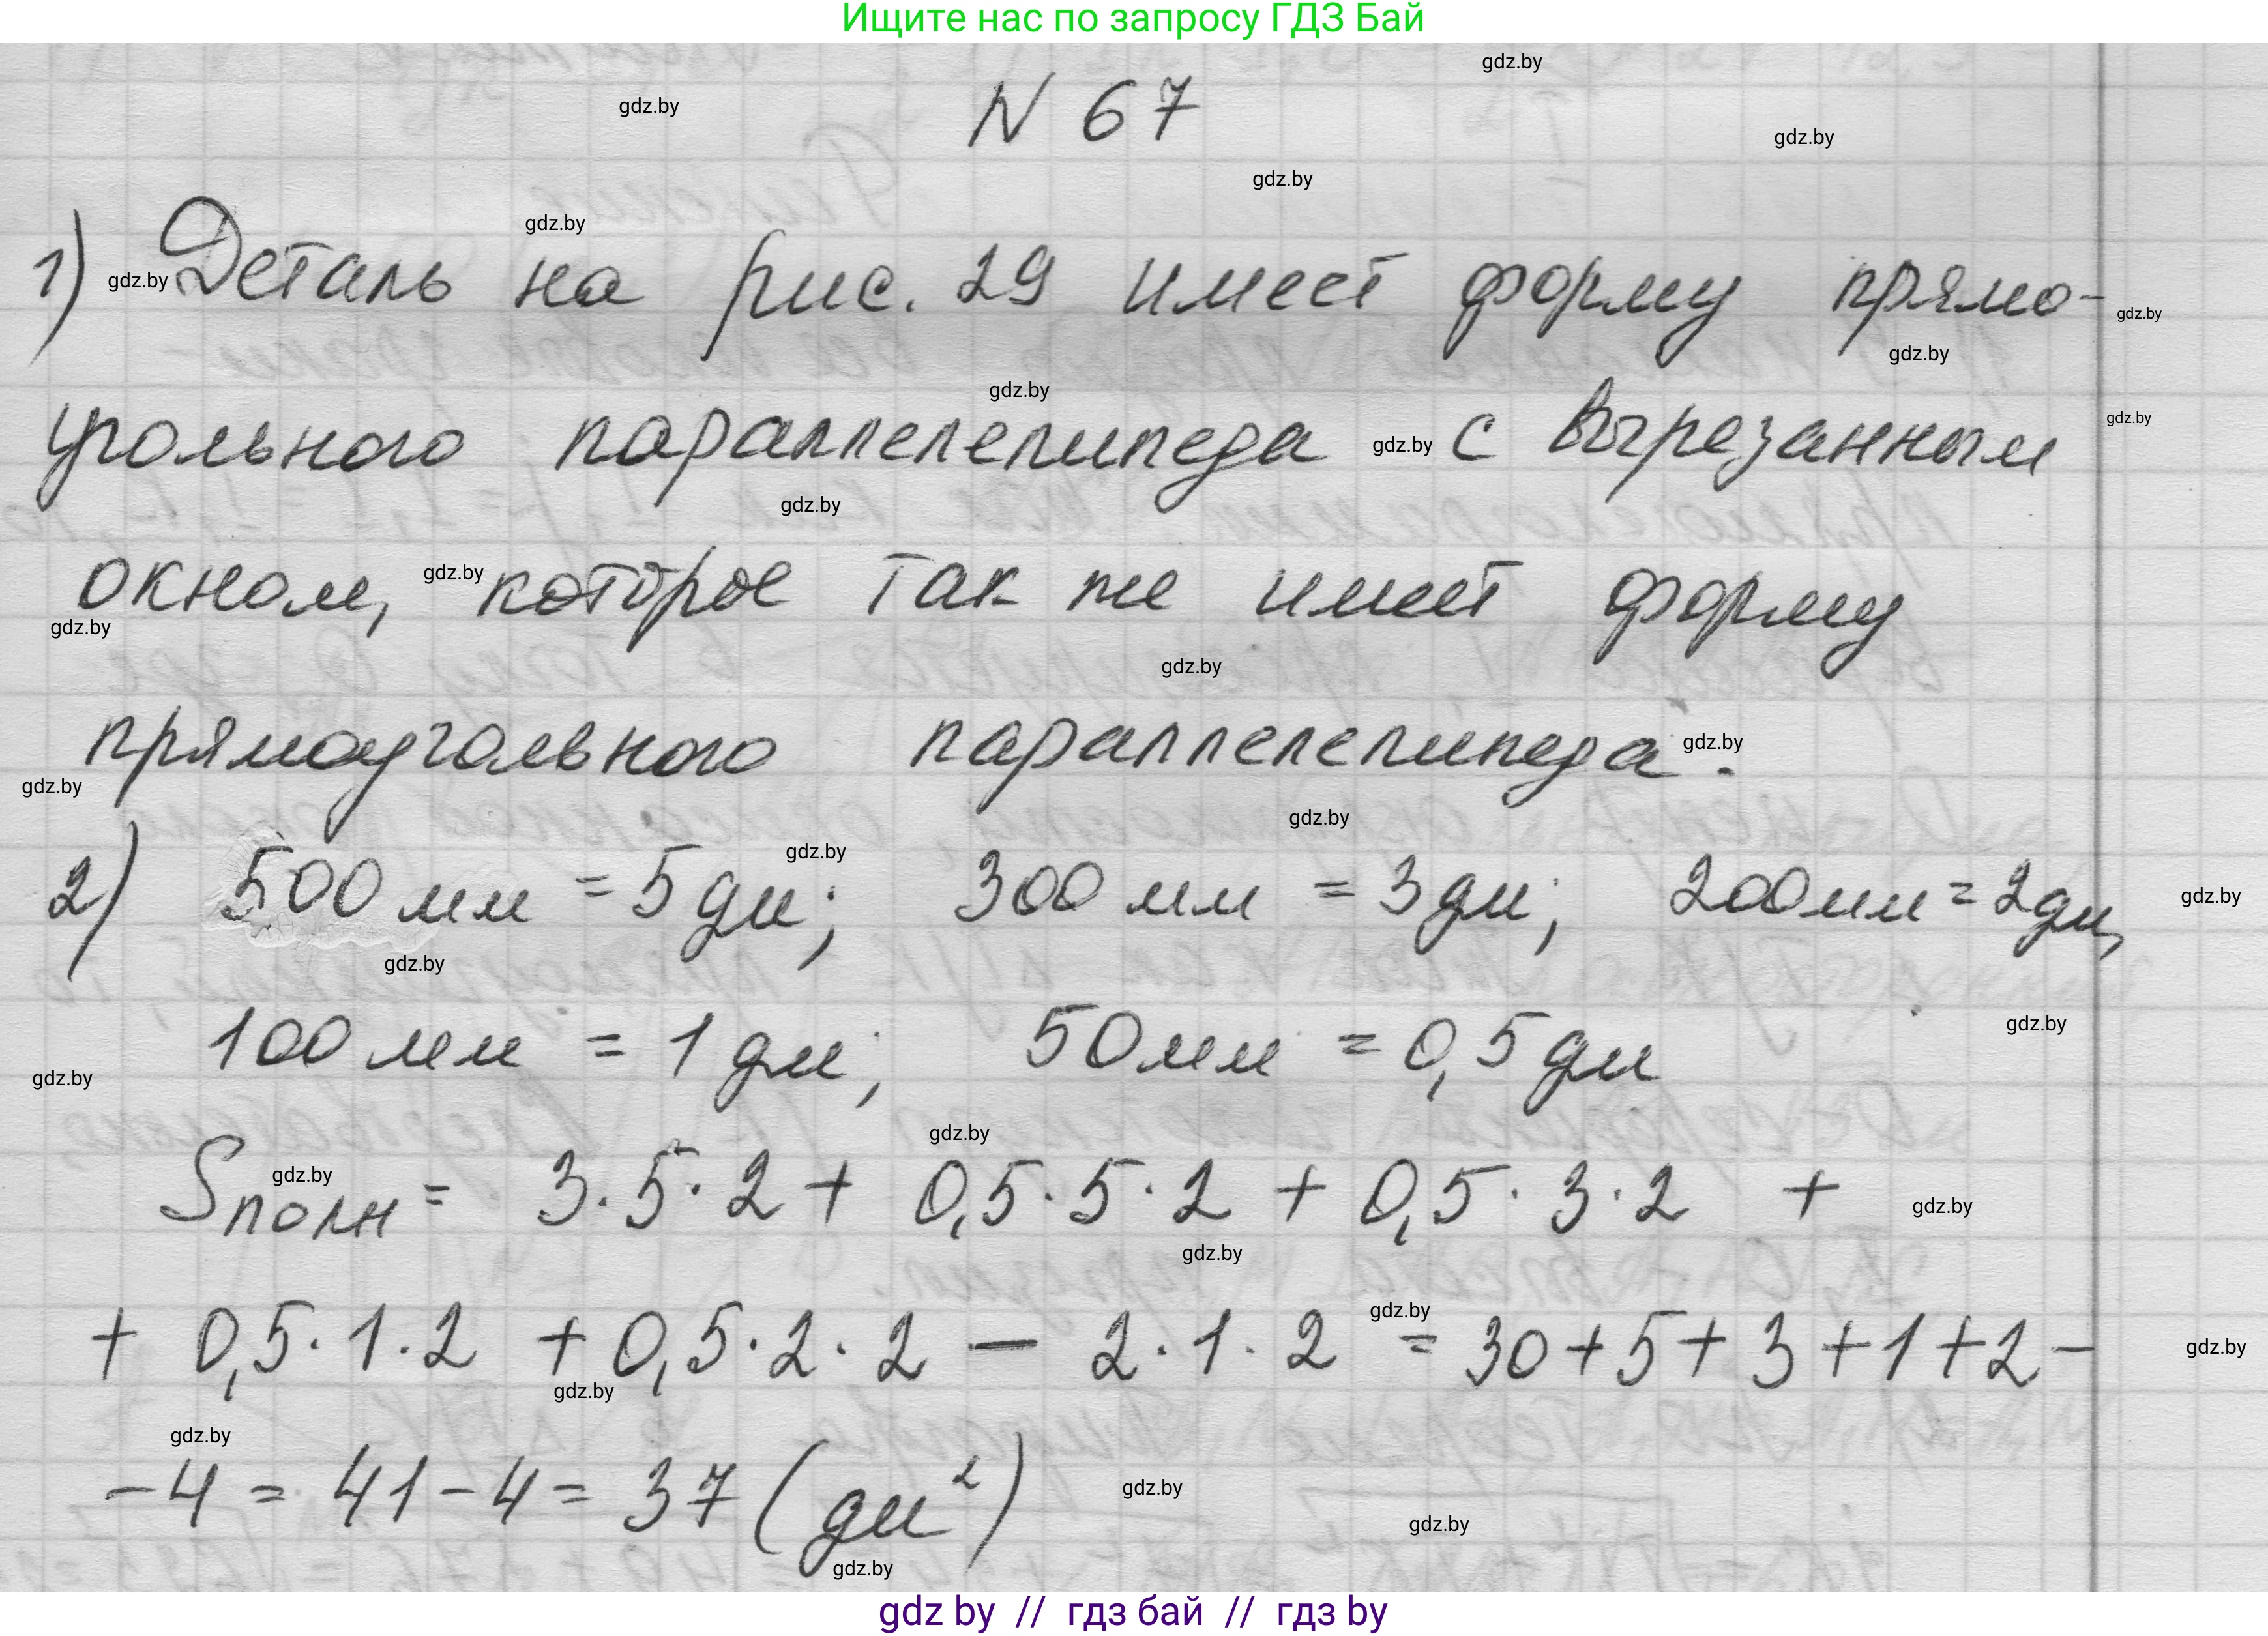 Ищите нас по запросу ГДЗ Бай
gdz.by
gdz.by N 67
gdz.by
gdz.by
gdz.by
1) gdz.by Деталь на рис. 29 имеет форму прямо- gdz.by
gdz.by
gdz.by
угольного параллелепипеда gdz.by с вырезанным gdz.by
gdz.by
окном, gdz.by которое так же имеет форму
gdz.by
gdz.by
прямоугольного параллелепипеда gdz.by.
gdz.by
gdz.by
gdz.by
2) 500 мм = 5 дм; 300 мм = 3 дм; 200 мм = 2 дм, gdz.by
gdz.by
gdz.by
100 мм = 1 дм; 50 мм = 0,5 дм
gdz.by
gdz.by
Sполн gdz.by = 3·5·2 + 0,5·5·2 + 0,5·3·2 + gdz.by
gdz.by
gdz.by
+ 0,5·1·2 + 0,5·2·2 – 2·1·2 = 30+5+3+1+2– gdz.by
gdz.by
gdz.by
–4 = 41–4 = 37 (дм²) gdz.by
gdz.by
gdz.by
gdz by // гдз бай // гдз by